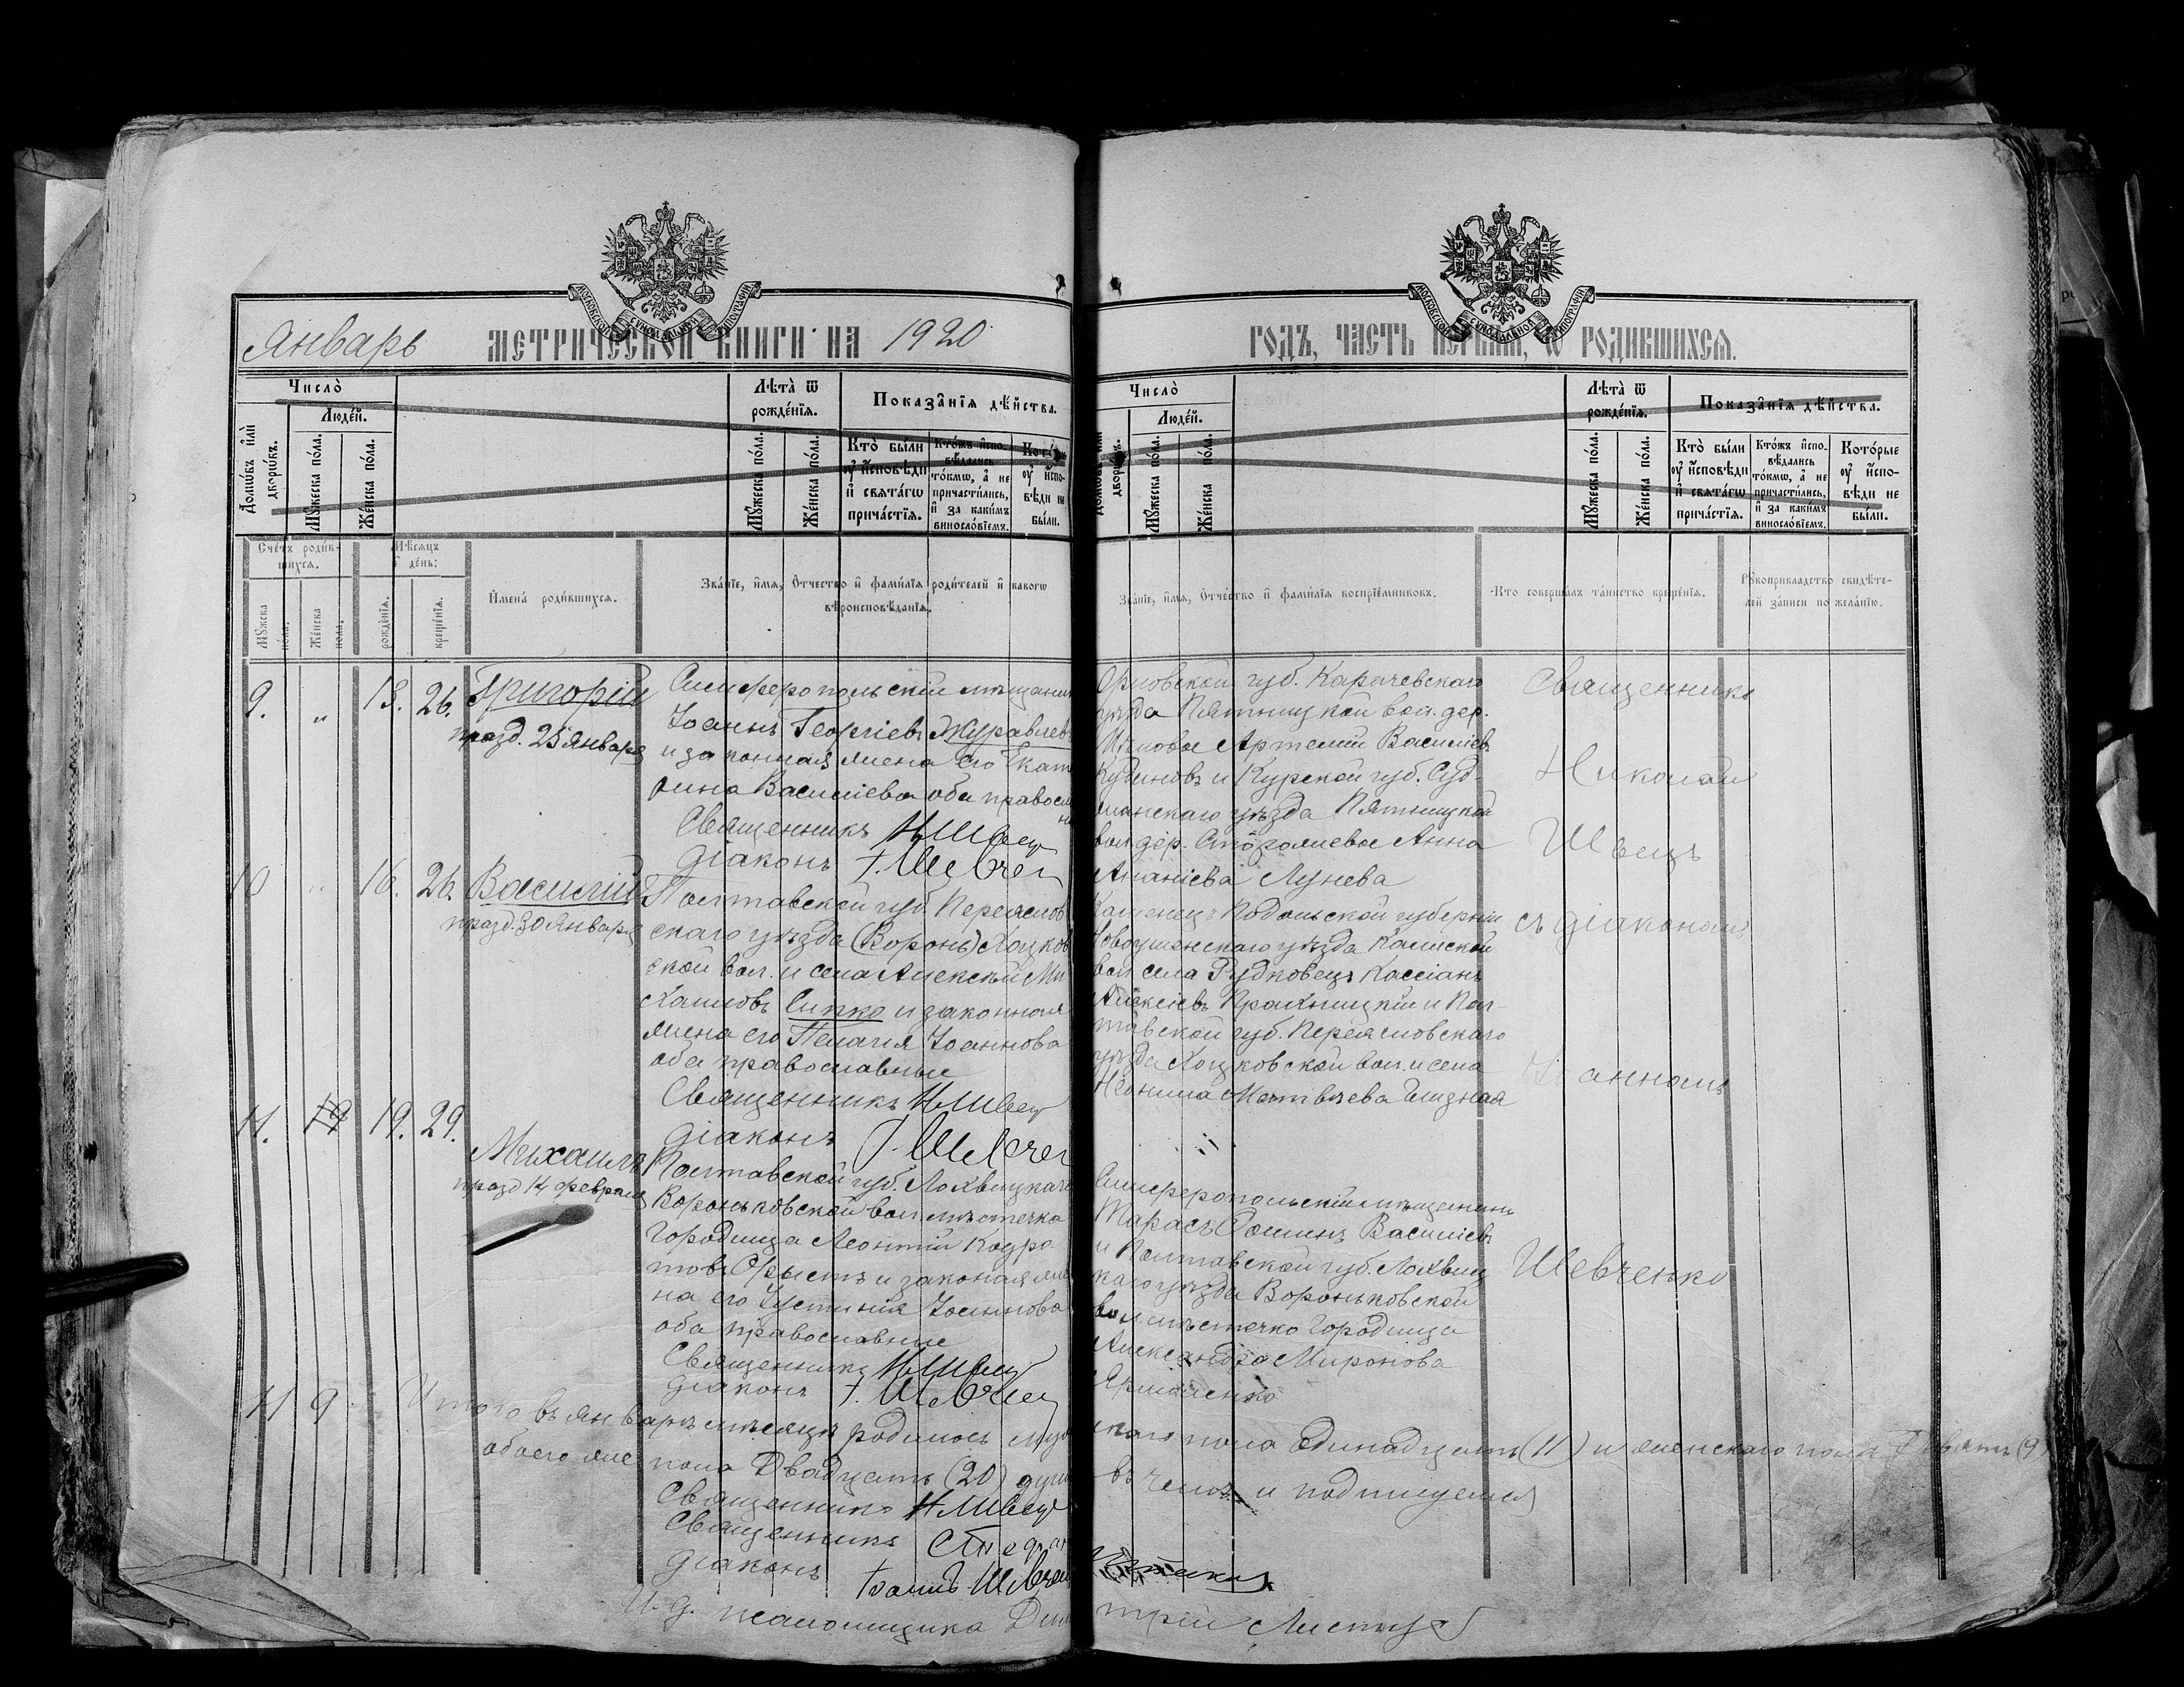 Январь
МЕТРИЧЕСКОЙ КНИГИ НА 1920
ГОДЪ, ЧАСТЬ ПЕРВАЯ, Ѡ РОДИВШИХСЯ.
МОСКОВСКОЙ СѴНОДАЛЬНОЙ ТИПОГРАФІИ
МОСКОВСКОЙ СѴНОДАЛЬНОЙ ТИПОГРАФІИ
Число̀
Люде́й.
Домѡ́въ и҆лѝ дворѡ́въ.
Мꙋ́жеска по́ла.
Же́нска по́ла.
Лѣта̀ ѿ рожде́нїѧ.
Мꙋ́жеска по́ла.
Же́нска по́ла.
Показа̑нїѧ дѣ́йства.
Кто̀ бы́ли
ᲂу҆ и҆сповѣ́ди
и҆ свѧта́гѡ
прича́стїѧ.
Кто́жъ и҆спо-
вѣ́дались
то́кмѡ, а҆ не
причасти́лись,
и҆ за каки́мъ
винослო́вїемъ.
Кото́рые
ᲂу҆ и҆спо-
вѣ́ди не
бы́ли.
Сче́тъ роди́в-
шихсѧ.
Мѣ́сѧцъ
и҆ де́нь:
Мꙋ́жска по́ла.
Же́нска по́ла.
рожде́нїѧ.
креще́нїѧ.
И҆мена̀ роди́вшихсѧ.
Зва́нїе, и҆́мѧ, ѻ҆́тчество и҆ фамѝлїѧ роди́телей и҆ какогѡ
вѣроисповѣ́данїѧ.
Зва́нїе, и҆́мѧ, ѻ҆́тчество и҆ фамѝлїѧ воспрїе́мниковъ.
Кто соверша́лъ та́инство креще́нїѧ.
Рꙋкоприкладство свидѣ́те-
лей за́писи по жела́нїю.
9. " 13. 26. Григорій
празд. 25 января
Симферопольскій мѣщанин
Іоаннъ Георгіевъ Журавлевъ
и законная жена его Екате
рина Василіева оба православ
ны
Священникъ Н Швец
діаконъ І. Шевчен
Орловской губ. Карачевскаго
уѣзда Пятницкой вол. дер.
Артемій Василіевъ
Кудиновъ и Курской губ. Суд-
жанскаго уѣзда Пятницкой
вол. дер. Анна
Ананіева Лунева
Священникъ
Николай
Швецъ
съ діакономъ
Іоанномъ
Шевченко
10 " 16. 26. Василій
празд. 30 января
Полтавской губ. Переяслов
скаго уѣзда (Воронь) Хоцков
ской вол. и села Алексѣй Ми
хаиловъ Сипко и законная
жена его Пелагія Іоаннова
оба православные
Священникъ Н Швец
діаконъ І. Шевчен
Каменецъ Подольской губерніи
Новоушенскаго уѣзда
вол. села Рудковецъ Кассіанъ
Алексіевъ и Пол-
тавской губ. Переясловскаго
уѣзда Хоцковской вол. и села
Неонила Матвѣева
11. 19. 29.
Михаилъ
празд 14 февраля
Полтавской губ. Лохвицкаго
Вороньковской вол. мѣстечка
Городища Леонтій Кодра
товъ и законная же
на его Устинія Іоаннова
оба православные
Священникъ Н Швец
діаконъ І. Шевчен
Симферопольскій мѣщанинъ
Тарасъ Василіевъ
и Полтавской губ. Лохвиц
каго уѣзда Вороньковской
вол. мѣстечко Городища
Александра Миронова
Ярмоленко
11 9 Итого въ январѣ мѣсяцѣ родилось муж
скаго пола Одинадцать (11) и женскаго пола Девять (9)
обоего же пола Двадцать (20) душ
въ чемъ и подписуемся
Священникъ Н Швец
Священникъ
діаконъ Іоаннъ Шевчен
И. д. псаломщика Дими
трій